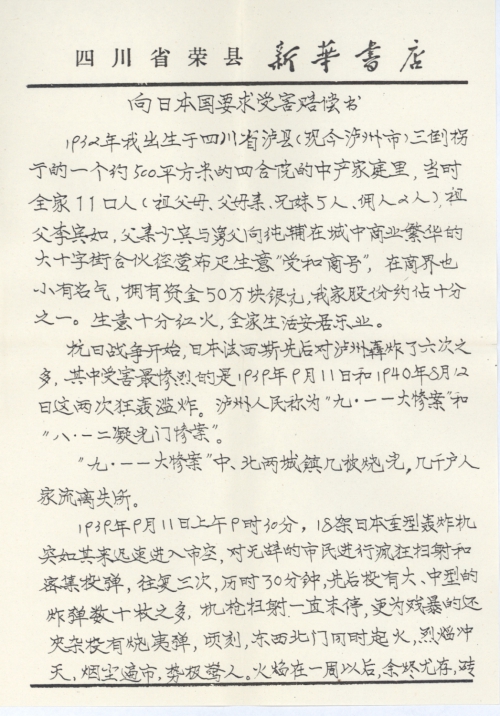 四川省荣县 新華書店
向日本国要求受害赔偿书
1932年我出生于四川省泸县(现今泸州市)三倒拐
子的一个约500平方米的四合院的中产家庭里，当时
全家11口人(祖父母、父母亲、兄妹5人、佣人2人)，祖
父李宾如，父亲少宾与舅父向纯辅在城中商业繁华的
大十字街合伙经营布疋生意“受和商号”，在商界也
小有名气，拥有资金50万块银元，我家股份约佔十分
之一。生意十分红火，全家生活安居乐业。
抗日战争开始，日本法西斯先后对泸州轰炸了六次之
多，其中受害最惨烈的是1939年9月11日和1940年8月12
日这两次狂轰滥炸。泸州人民称为“九·一一大惨案”和
“八·一二凝光门惨案”。
“九·一一大惨案”中、北两城镇几被烧光，几千户人
家流离失所。
1939年9月11日上午9时30分，18架日本重型轰炸机
突如其来迅速进入市空，对无辜的市民进行疯狂扫射和
密集投弹，往复三次，历时30分钟，先后投有大、中型的
炸弹数十枚之多，机枪扫射一直未停，更为残暴的还
夹杂投有烧夷弹，顷刻，东西北门同时起火，烈焰冲
天，烟尘遍市，势极惊人。火焰在一周以后，余烬尤存，砖